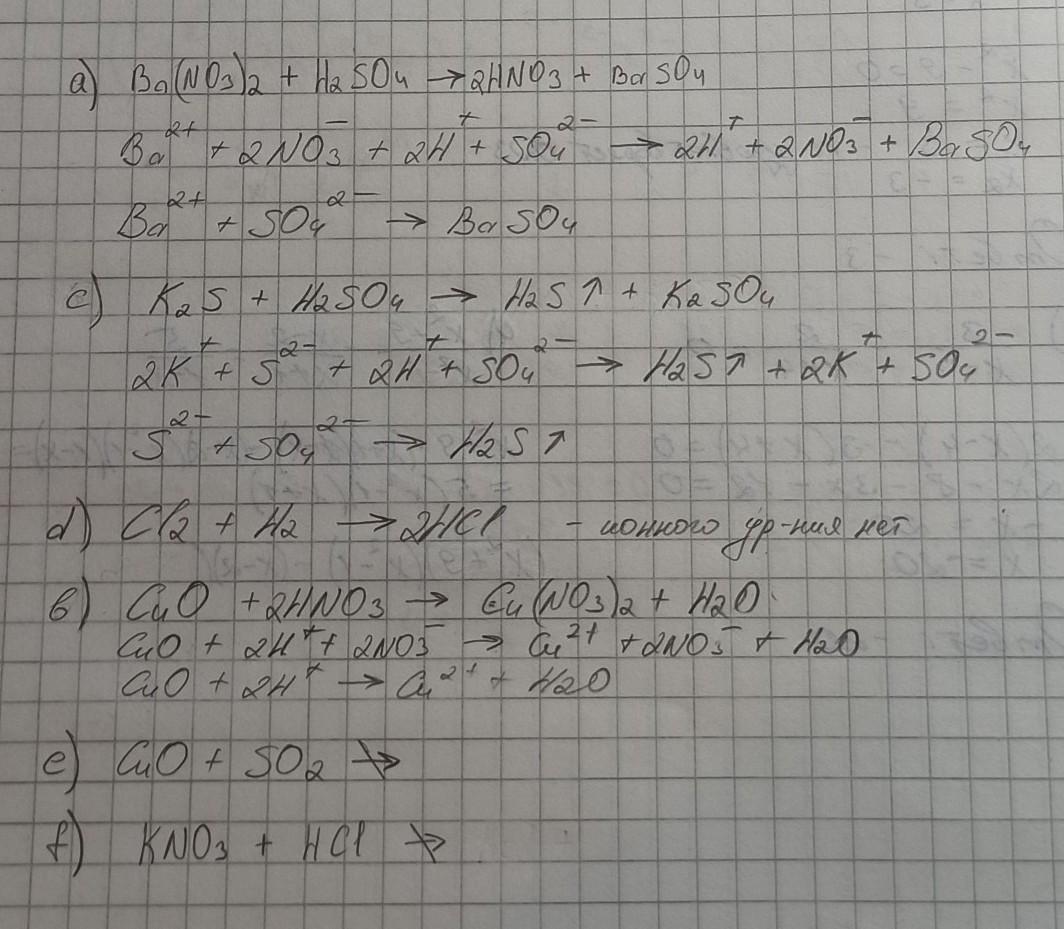 a) Ba(NO3)2 + H2SO4 → 2HNO3 + BaSO4
Ba²⁺ + 2NO3⁻ + 2H⁺ + SO4²⁻ → 2H⁺ + 2NO3⁻ + BaSO4
Ba²⁺ + SO4²⁻ → BaSO4
c) K2S + H2SO4 → H2S↑ + K2SO4
2K⁺ + S²⁻ + 2H⁺ + SO4²⁻ → H2S↑ + 2K⁺ + SO4²⁻
S²⁻ + SO4²⁻ → H2S↑
d) Cl2 + H2 → 2HCl - ионного ур-ния нет
b) CuO + 2HNO3 → Cu(NO3)2 + H2O
CuO + 2H⁺ + 2NO3⁻ → Cu²⁺ + 2NO3⁻ + H2O
CuO + 2H⁺ → Cu²⁺ + H2O
e) CuO + SO2 ↛
f) KNO3 + HCl ↛